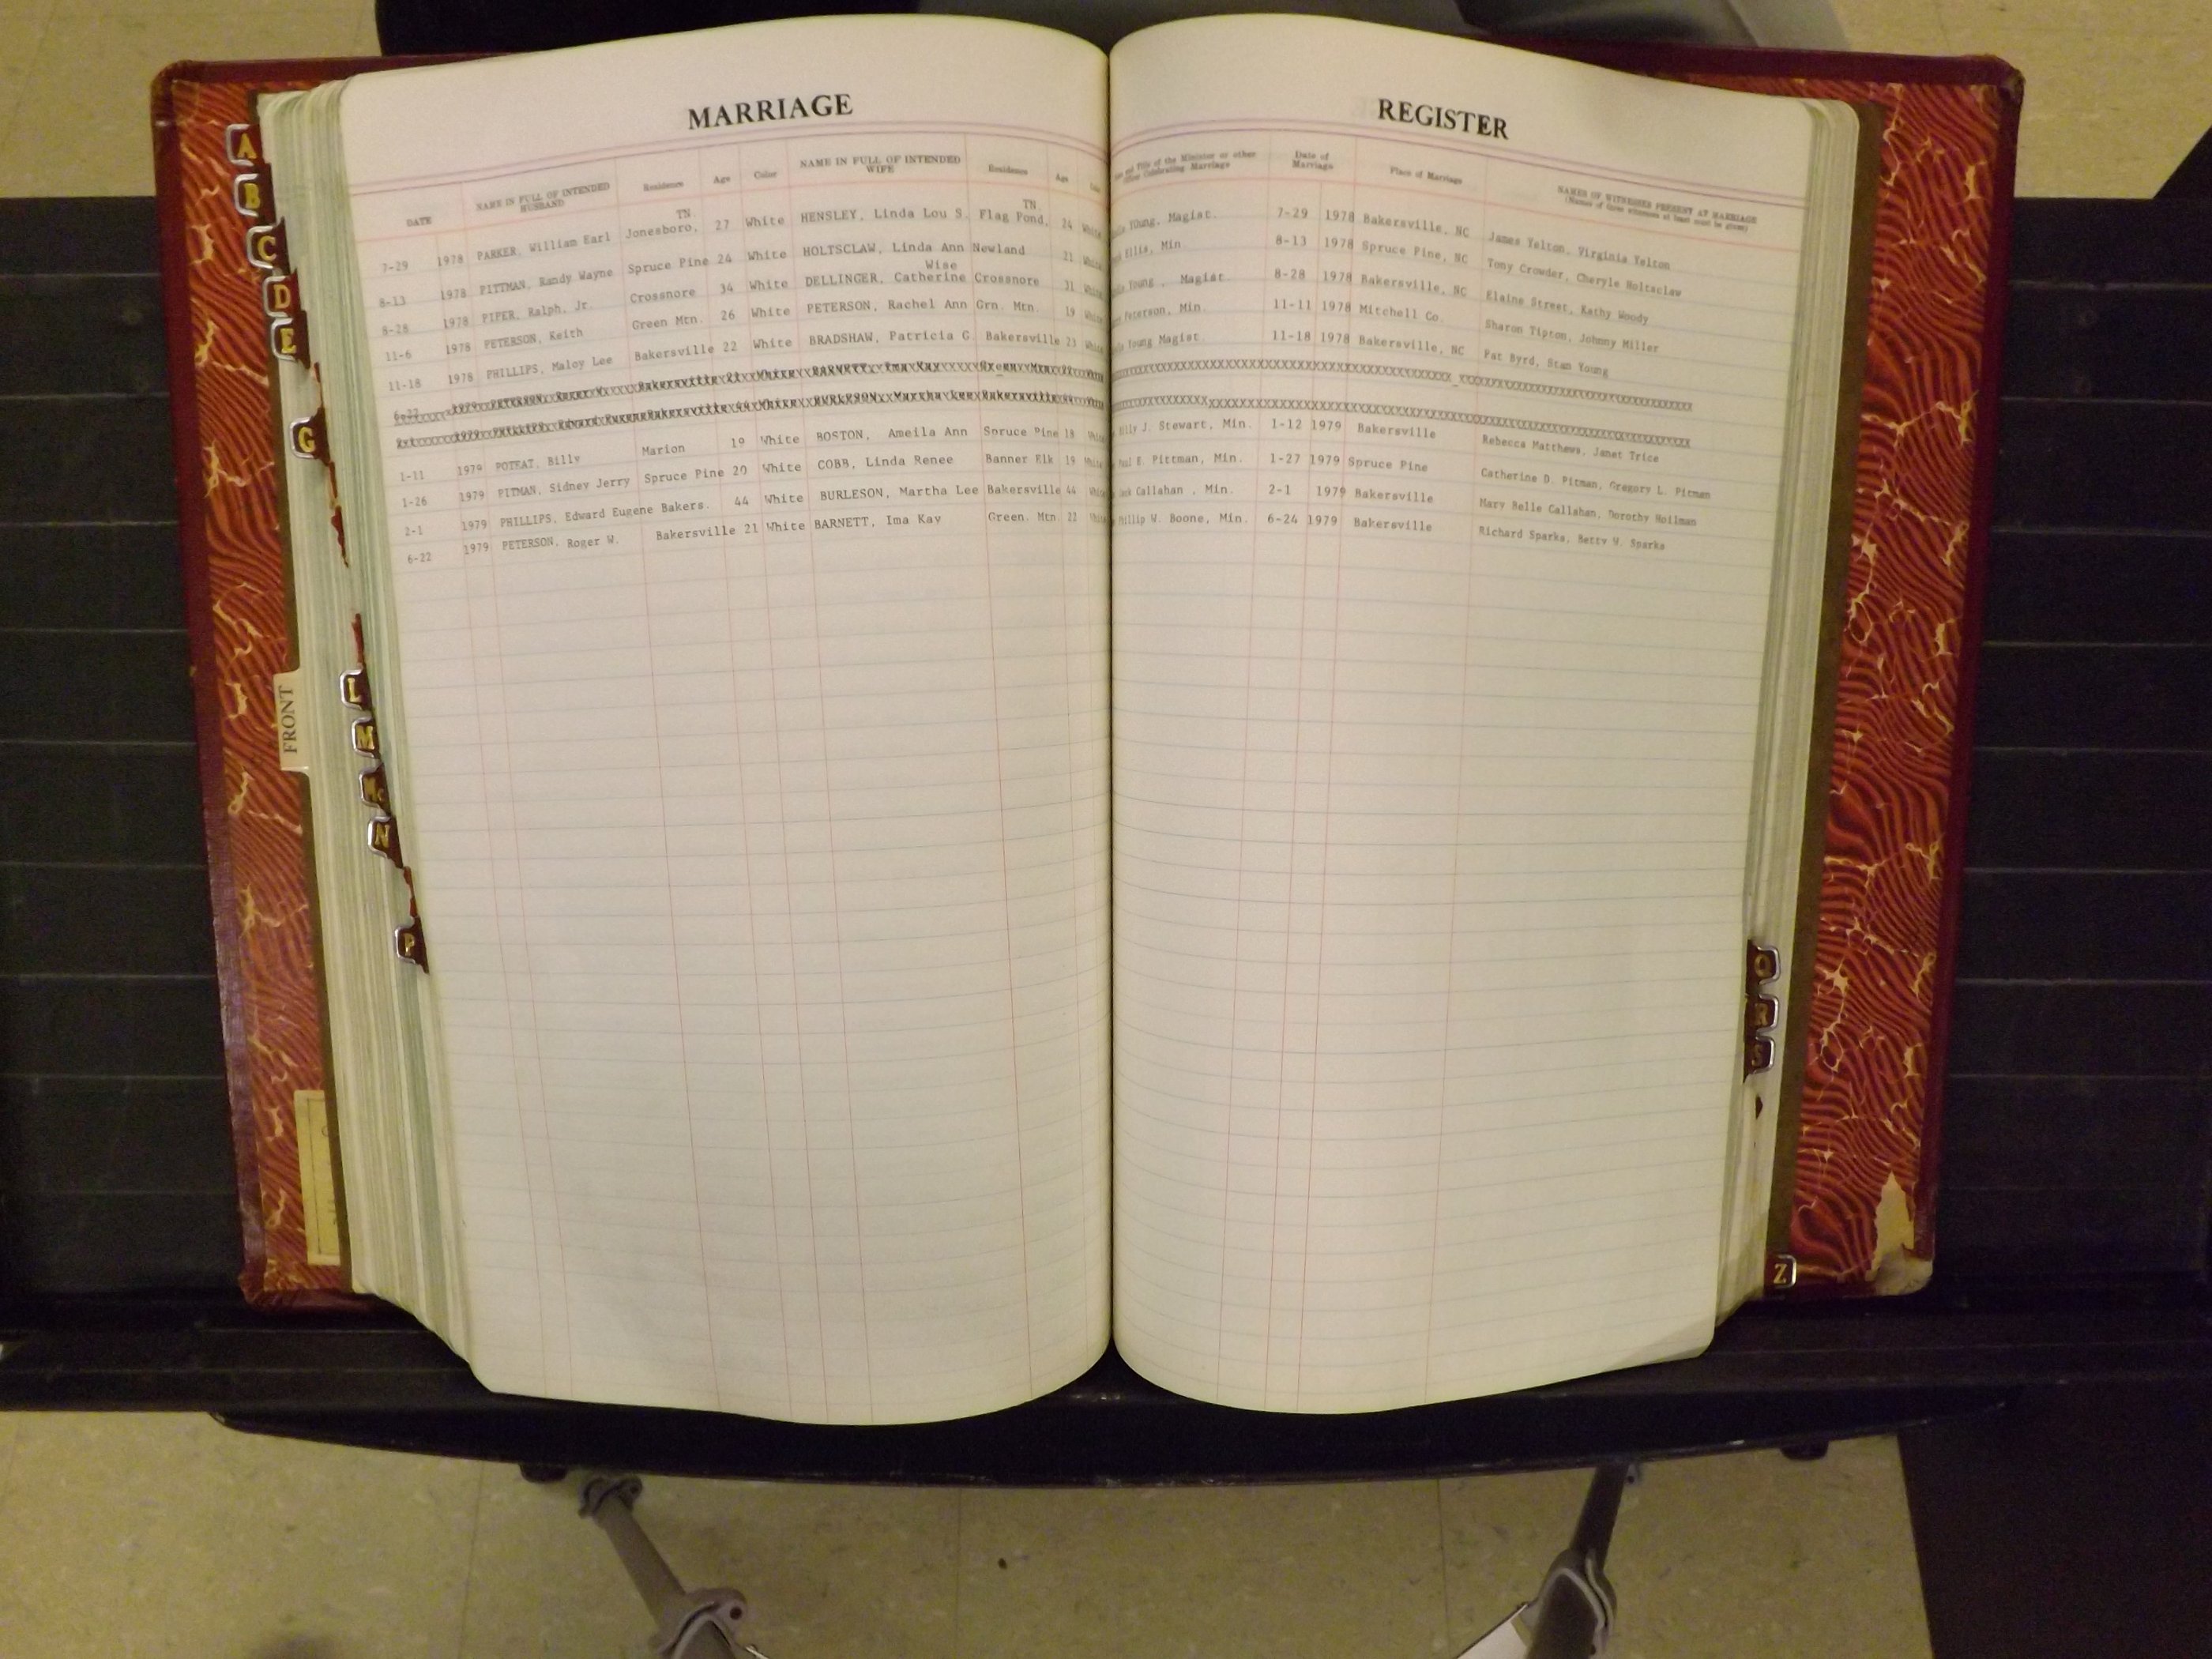 MARRIAGE REGISTER
DATE NAME IN FULL OF INTENDED HUSBAND Residence Age Color NAME IN FULL OF INTENDED WIFE Residence Age
Title of the Minister or other Officer Celebrating Marriage Date of Marriage Place of Marriage NAMES OF WITNESSES PRESENT AT MARRIAGE
(Names of three witnesses at least must be given)
7-29 1978 PARKER, William Earl Jonesboro, TN. 27 White HENSLEY, Linda Lou S. Flag Pond, TN. 24 White Young, Magist. 7-29 1978 Bakersville, NC James Yelton, Virginia Yelton
8-13 1978 PITTMAN, Randy Wayne Spruce Pine 24 White HOLTSCLAW, Linda Ann Newland 21 White Ellis, Min 8-13 1978 Spruce Pine, NC Tony Crowder, Cheryle Holtsclaw
8-28 1978 PIPER, Ralph, Jr. Crossnore 34 White DELLINGER, Catherine Wise Crossnore 31 White Young, Magist 8-28 1978 Bakersville, NC Elaine Street, Kathy Woody
11-6 1978 PETERSON, Keith Green Mtn. 26 White PETERSON, Rachel Ann Grn. Mtn. 19 White Peterson, Min 11-11 1978 Mitchell Co. Sharon Tipton, Johnny Miller
11-18 1978 PHILLIPS, Maloy Lee Bakersville 22 White BRADSHAW, Patricia G. Bakersville 23 White Young Magist 11-18 1978 Bakersville, NC Pat Byrd, Stan Young
6-22 1979 PETERSON, Roger W. Bakersville 21 White BARNETT, Ima Kay Green Mtn 22
2-1 1979 PHILLIPS, Edward Eugene Bakersville 44 White BURLESON, Martha Lee Bakersville 44
1-11 1979 POTEAT, Billy Marion 19 White BOSTON, Ameila Ann Spruce Pine 18 White Billy J. Stewart, Min. 1-12 1979 Bakersville Rebecca Matthews, Janet Trice
1-26 1979 PITMAN, Sidney Jerry Spruce Pine 20 White COBB, Linda Renee Banner Elk 19 White Paul E. Pittman, Min. 1-27 1979 Spruce Pine Catherine D. Pitman, Gregory L. Pitman
2-1 1979 PHILLIPS, Edward Eugene Bakers. 44 White BURLESON, Martha Lee Bakersville 44 White Callahan, Min. 2-1 1979 Bakersville Mary Belle Callahan, Dorothy Hoilman
6-22 1979 PETERSON, Roger W. Bakersville 21 White BARNETT, Ima Kay Green. Mtn 22 White Phillip W. Boone, Min. 6-24 1979 Bakersville Richard Sparks, Betty W. Sparks
A
B
C
D
E
G
FRONT
L
M
Mc
N
P
Q
R
S
Z